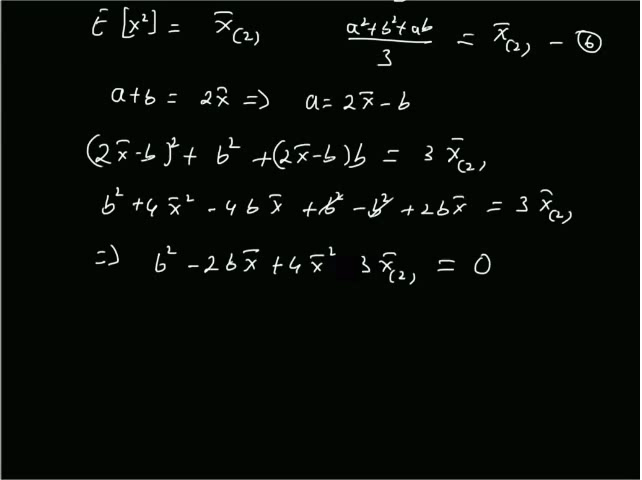 E [x²] = x̄₍₂₎    (a²+b²+ab)/3 = x̄₍₂₎ – ⑥
a+b = 2x̄ => a = 2x̄ – b
(2x̄–b)² + b² + (2x̄–b)b = 3 x̄₍₂₎
b² + 4x̄² – 4bx̄ + b² – b² + 2bx̄ = 3x̄₍₂₎
=> b² – 2bx̄ + 4x̄² 3x̄₍₂₎ = 0